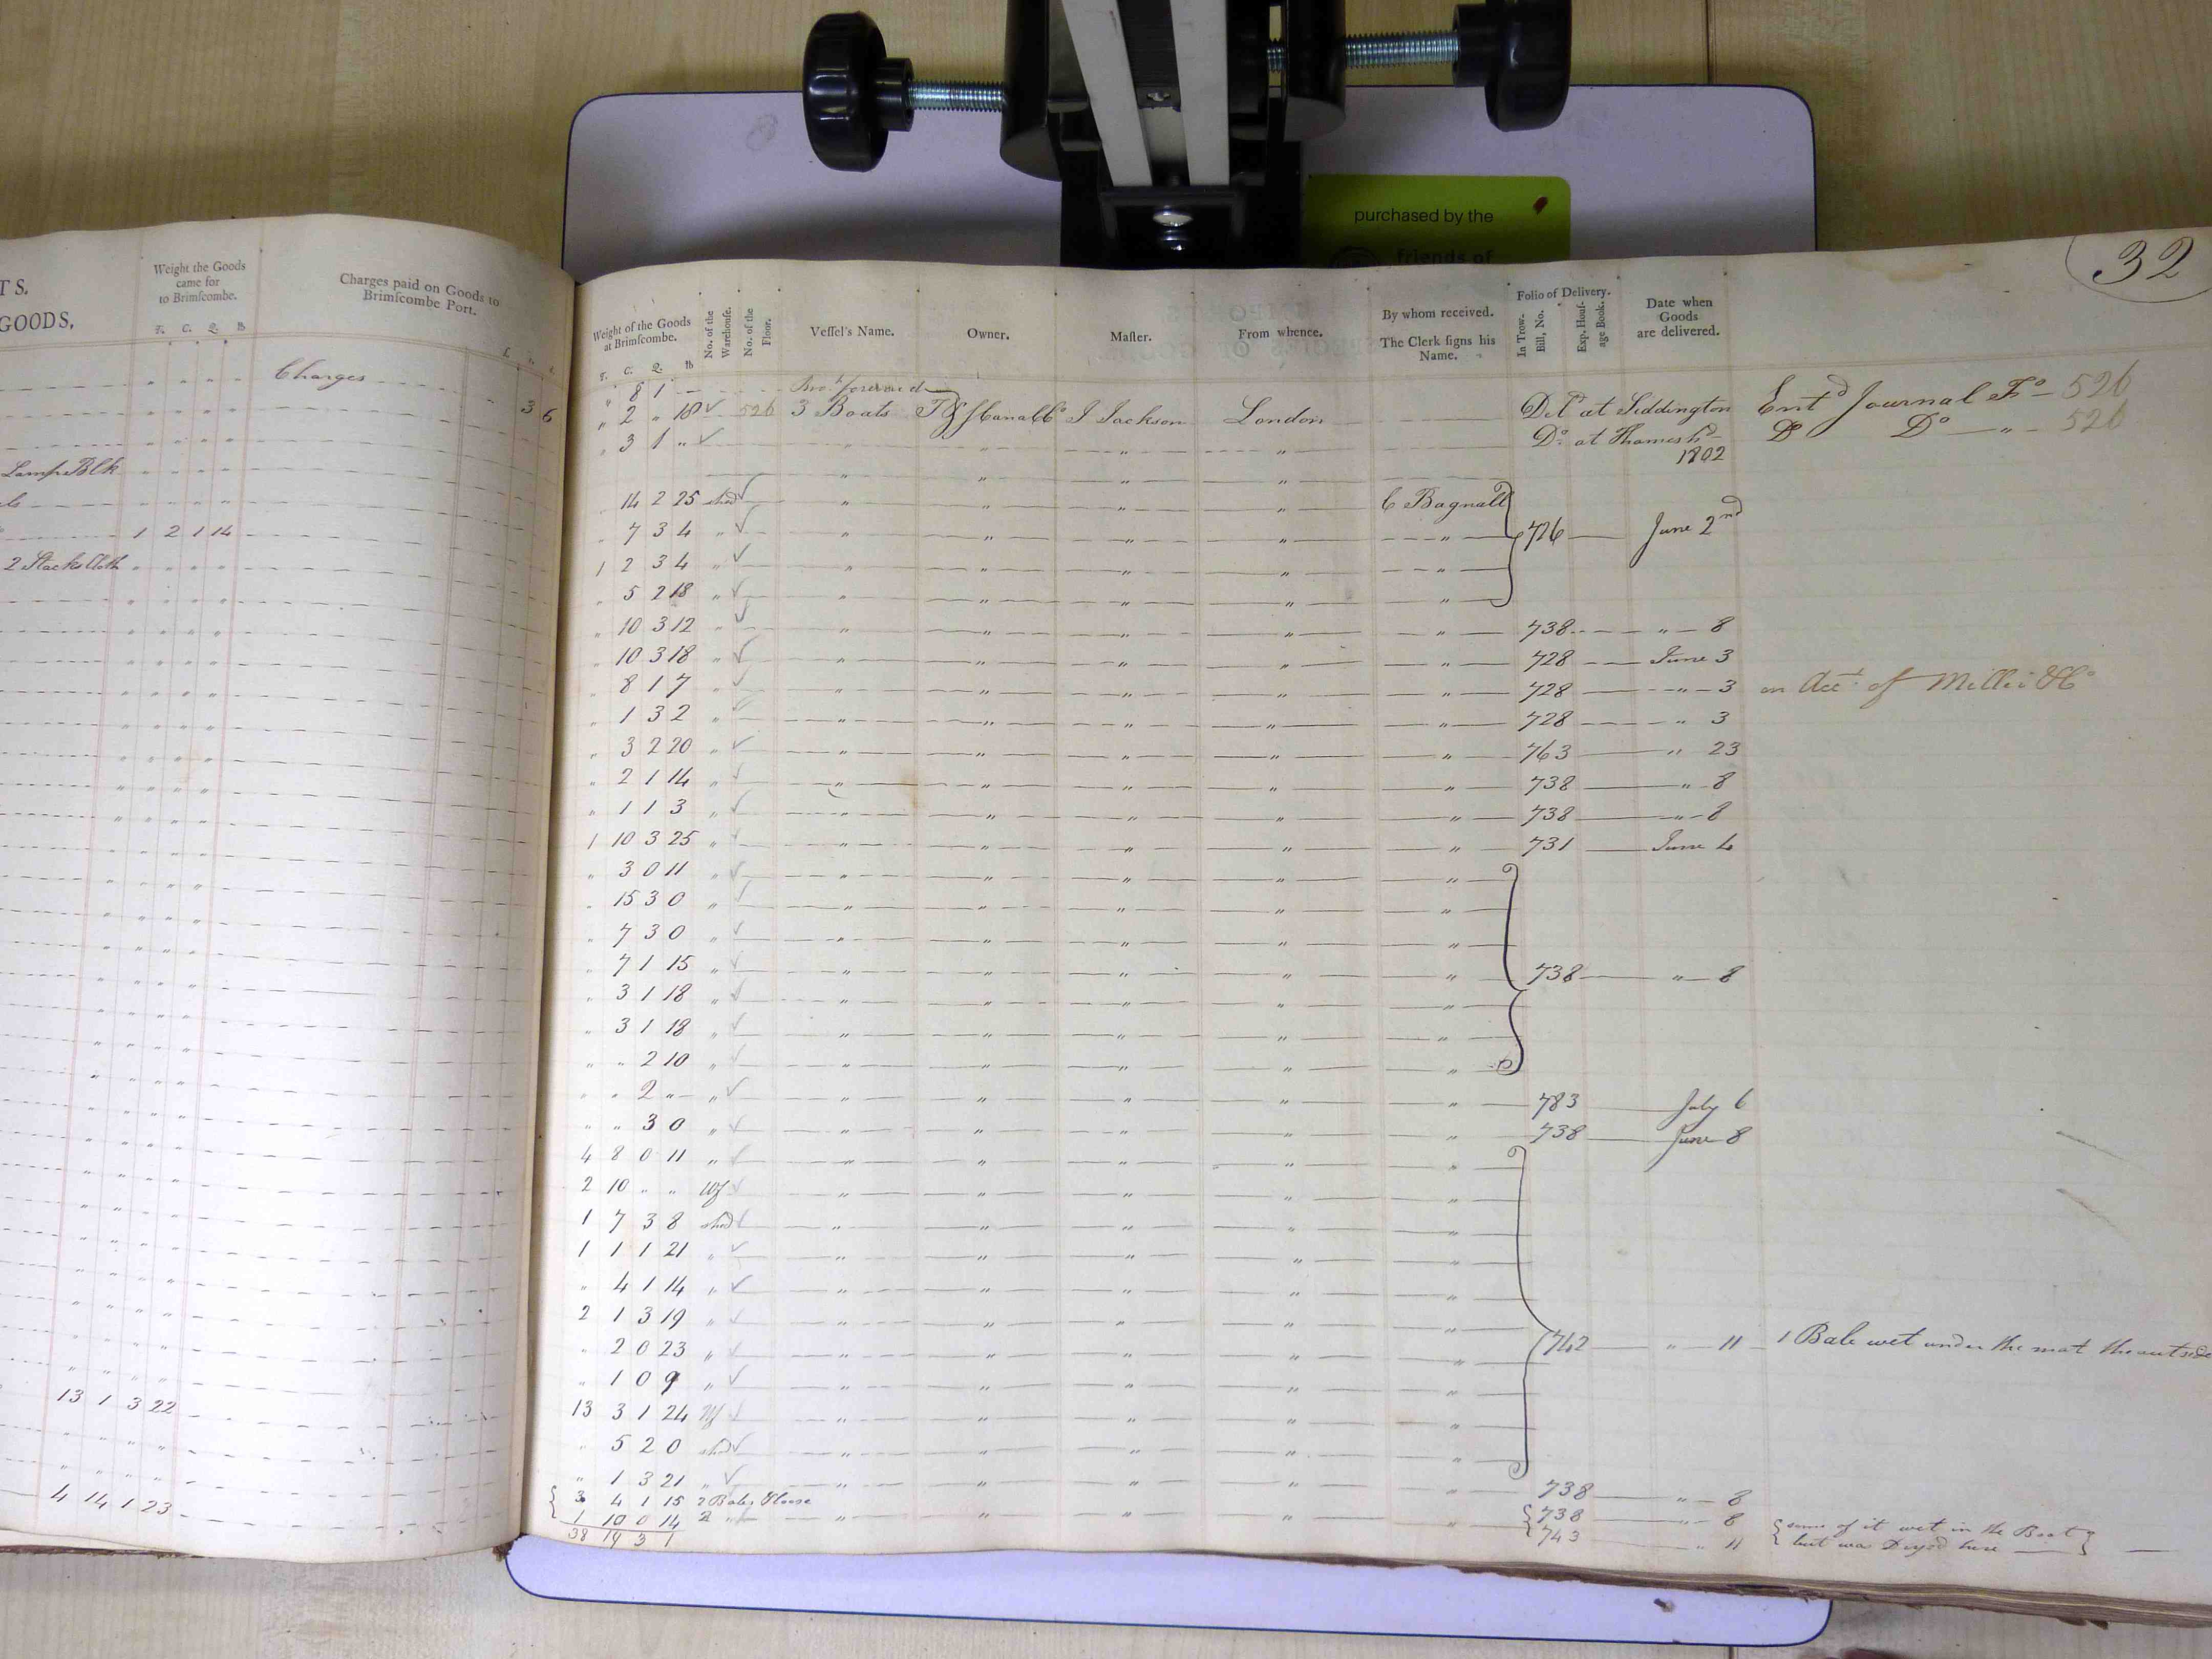 purchased by the
friends of
TS.
GOODS,
Weight the Goods
came for
to Brimſcombe.
T. C. Q. lb
Charges paid on Goods to
Brimſcombe Port.
£. s. d.
Charges 3 6
Lamp Blk
1 2 1 14
2 Stacks Cloth
13 1 3 22
4 14 1 23
32
Weight of the Goods
at Brimſcombe.
T. C. Q. lb
No. of the
Warehouſe.
No. of the
Floor.
Veſſel's Name.
Owner.
Maſter.
From whence.
By whom received.
The Clerk ſigns his
Name.
Folio of Delivery.
In Trow-
Bill, No.
Exp. Houſ-
age Book.
Date when
Goods
are delivered.
" 8 1 — Bro.t forward
" 2 " 18 ✓ 526 3 Boats J Jackson London Del.d at Siddington Ent.d Journal Fo — 526
" 3 1 " ✓ " " " " Do at Thames hd Do Do — " — 526
1802
" " " "
14 2 25 shed ✓ " " " " C Bagnall
" 7 3 4 " ✓ " " " " " 726 June 2nd
1 2 3 4 " ✓ " " " " "
" 5 2 18 " ✓ " " " " "
" 10 3 12 " ✓ " " " " " 738 " 8
" 10 3 18 " ✓ " " " " " 728 June 3
" 8 1 7 " ✓ " " " " " 728 " 3 on Acct. of Miller & Co
" 1 3 2 " ✓ " " " " " 728 " 3
" 3 2 20 " ✓ " " " " " 763 " 23
" 2 1 14 " ✓ " " " " " 738 " 8
" 1 1 3 " ✓ " " " " " 738 " 8
1 10 3 25 " ✓ " " " " " 731 June 4
" 3 0 11 " ✓ " " " " "
" 15 3 0 " ✓ " " " " "
" 7 3 0 " ✓ " " " " "
" 7 1 15 " ✓ " " " " " 738 " 8
" 3 1 18 " ✓ " " " " "
" 3 1 18 " ✓ " " " " "
" " 2 10 " ✓ " " " " "
" " 2 " " ✓ " " " " " 783 July 6
" " 3 0 " ✓ " " " " " 738 June 8
4 8 0 11 " ✓ " " " " "
2 10 " " Wf ✓ " " " " "
1 7 3 8 shed ✓ " " " " "
1 1 1 21 " ✓ " " " " "
" 4 1 14 " ✓ " " " " "
2 1 3 19 " ✓ " " " " "
" 2 0 23 " ✓ " " " " " 742 " 11 1 Bale wet under the mat the outside
" 1 0 9 " ✓ " " " " "
13 3 1 24 Wf ✓ " " " " "
" 5 2 0 shed ✓ " " " " "
" 1 3 21 " ✓ " " " " " 738 " 8
3 4 1 15 2 Bales " " " " " 738 " 8
1 10 0 14 2 743 " 11 some of it wet in the Boat
38 19 3 1 but was Dryed here